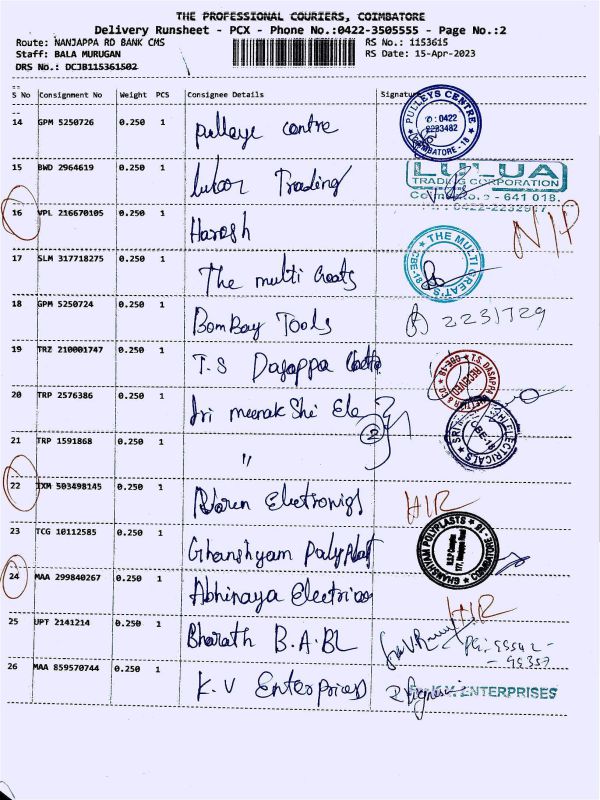 THE PROFESSIONAL COURIERS, COIMBATORE
Delivery Runsheet - PCX - Phone No.:0422-3505555 - Page No.:2
Route: NANJAPPA RD BANK CMS RS No.: 1153615
Staff: BALA MURUGAN RS Date: 15-Apr-2023
DRS No.: DCJB115361502
S No Consignment No Weight PCS Consignee Details Signature
14 GPM 5250726 0.250 1 Pulleye centre
PULLEYS CENTRE
✆: 0422
2283482
COIMBATORE - 18
15 BWD 2964619 0.250 1 Trading
LU LUA
TRADING CORPORATION
641 018.
16 VPL 216670105 0.250 1 Haresh N/P
17 SLM 317718275 0.250 1 The multi
THE MULTI
CBE-18
18 GPM 5250724 0.250 1 Bombay Tools 2231729
19 TRZ 210001747 0.250 1 T.S Dasappa
T.S. DASAPPA
RECEIVED
CBE-18
20 TRP 2576386 0.250 1 Sri meenakshi Ele
2
SRI
ELECTRICALS
CBE-18
21 TRP 1591868 0.250 1 "
22 IXM 503498145 0.250 1 Naren Electronigs HIR
23 TCG 10112585 0.250 1 Ghanshyam Polyplast
GHANSHYAM POLYPLASTS
COIMBATORE - 18
24 MAA 299840267 0.250 1 Abhinaya Electricas HIR
25 UPT 2141214 0.250 1 Bharath B.A.BL
26 MAA 859570744 0.250 1 K.V Enterprises
ENTERPRISES